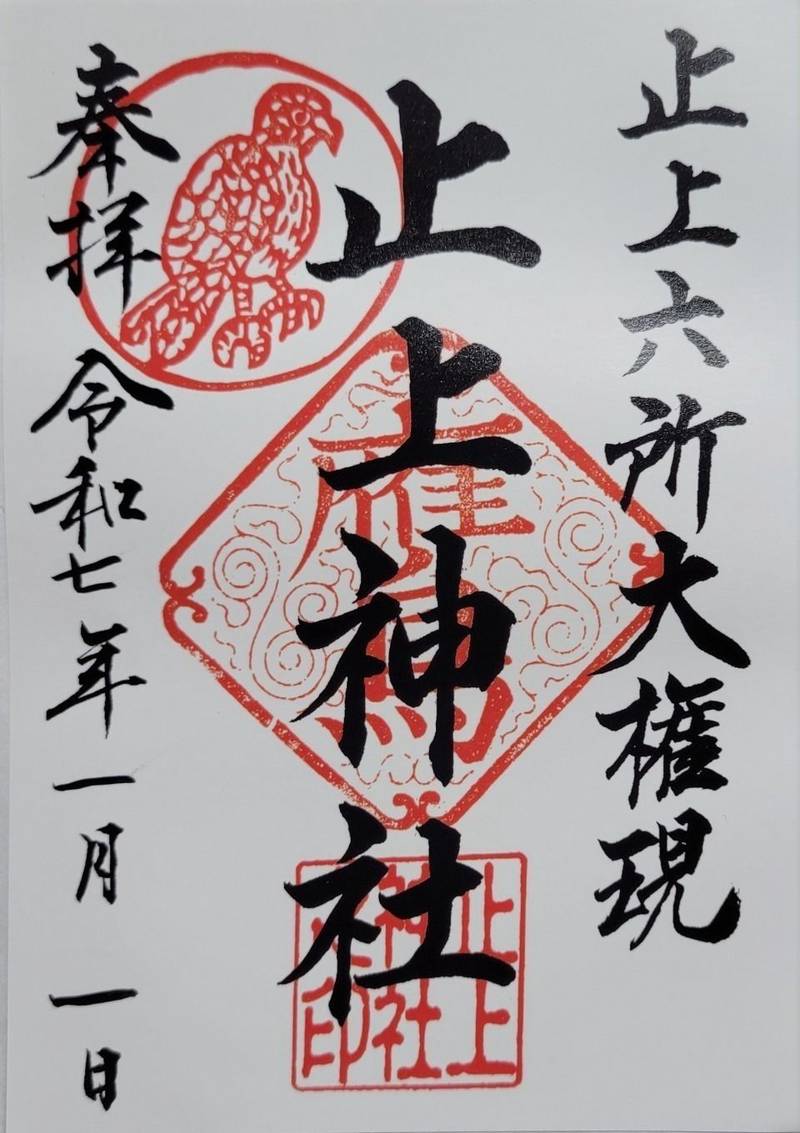 止上六所大権現
止上神社
奉拝 令和七年一月一日
鷹
止上
神社
之印